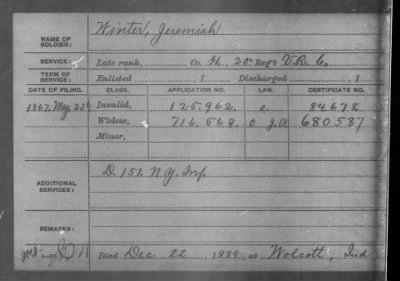 NAME OF SOLDIER: Winter, Jeremiah
SERVICE: Late rank, Co. H, 20" Reg't V.R.C.
TERM OF SERVICE: Enlisted , 1 Discharged , 1
DATE OF FILING. CLASS. APPLICATION NO. LAW. CERTIFICATE NO.
1867, May 22 Invalid, 125.962. a. 84.678
Widow, 716.563. J.A 680587
Minor,
ADDITIONAL SERVICES: D. 151. N.Y. Inf
REMARKS:
Died Dec 22, 1889, at Wolcott, Ind